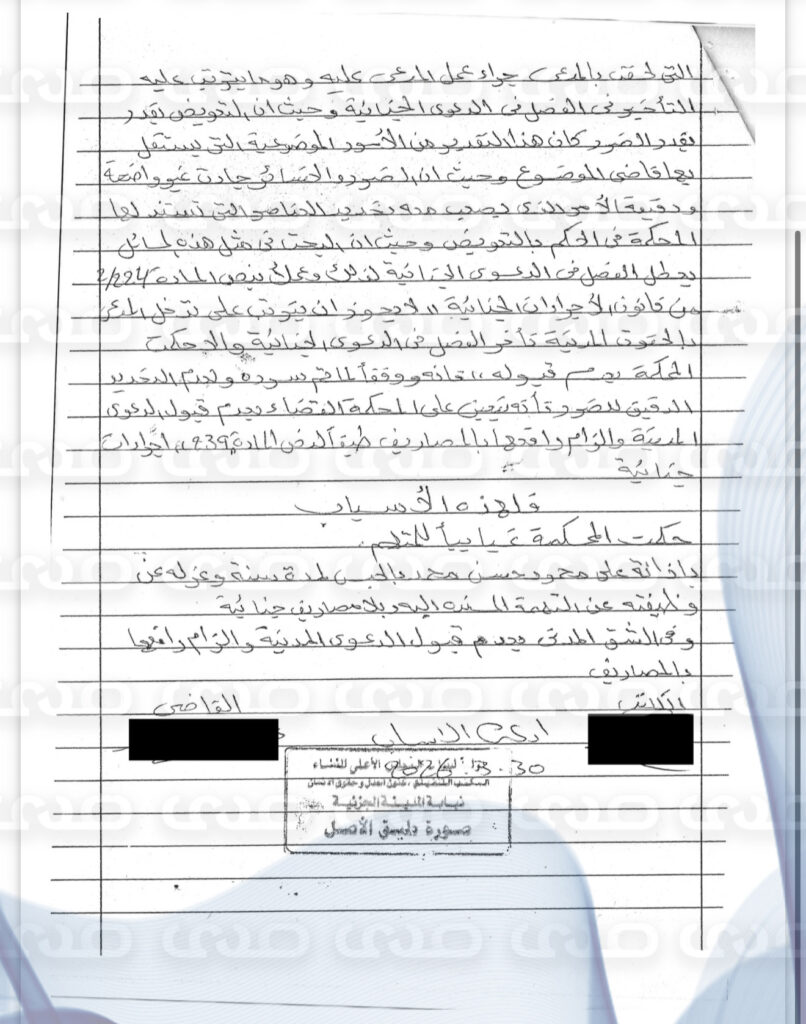 التي لحقت بالمدعى جراء عمل المدعى عليه وهو ما يترتب عليه
التأخير في الفصل في الدعوى الجنائية وحيث ان التعويض يقدر
بقدر الضرر كان هذا التقدير من الأمور الموضوعية التي يستقل
بها قاضي الموضوع وحيث ان الضرر والخسائر جاءت غير واضحة
ودقيقة الأمر الذي يصعب معه تحديد العناصر التي تستند لها
المحكمة في الحكم بالتعويض وحيث ان البحث في مثل هذه المسائل
يعطل الفصل في الدعوى الجنائية لذلك وعملاً بنص المادة 2/224
من قانون الأجراءات الجنائية "لا يجوز ان يترتب على تدخل المدعي
بالحقوق المدنية تأخر الفصل في الدعوى الجنائية والا حكمت
المحكمة بعدم قبوله" فانه ووفقاً لما تم سرده ولعدم التحديد
الدقيق للضرر فأنه يتعين على المحكمة القضاء بعدم قبول الدعوى
المدنية والزام رافعها بالمصاريف طبقاً لنص المادة "239" اجراءات
جنائية
فلهذه الأسباب
حكمت المحكمة غيابياً للمتهم.
بإدانة على محمود حسن محمد بالحبس لمدة سنة وعزله عن
وظيفته عن التهمة المسنده اليه وبلا مصاريف جنائية
وفي الشق المدني بعدم قبول الدعوى المدنية والزام رافعها
بالمصاريف
الكاتب القاضي
30
نيابة المدينة الجزئية
صورة طبق الأصل
صدى